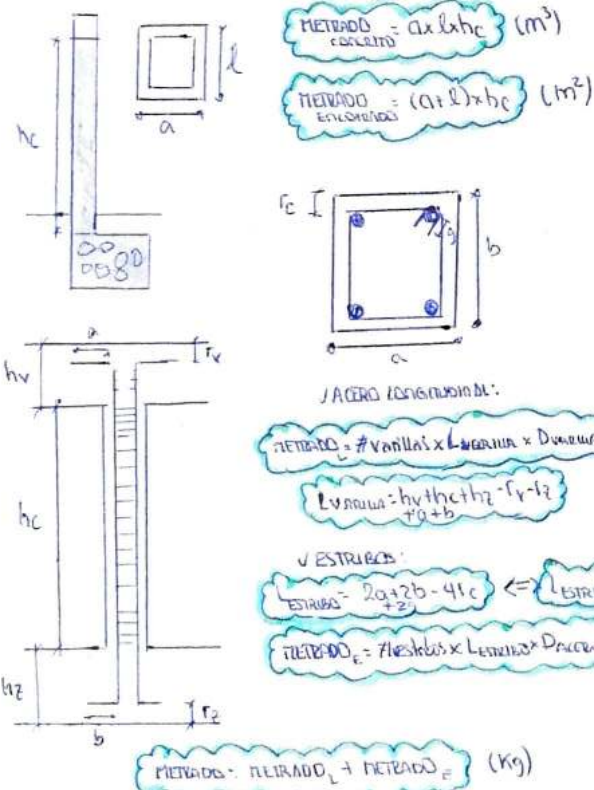 METRADO CONCRETO = a x l x hc (m³)
l
a
hc
METRADO ENCOFRADO = (a+l) x hc (m²)
rc
b
a
a
rv
hv
hc
hz
rz
b
√ACERO LONGITUDINAL:
METRADO L = # varillas x L VARILLA x D
L VARILLA = hv+hc+hz-rv-rz
+a+b
√ESTRIBOS:
L ESTRIBO = 2a+2b-4rc <=> L
METRADO E = # estribos x L ESTRIBO x D
METRADO = METRADO L + METRADO E (Kg)